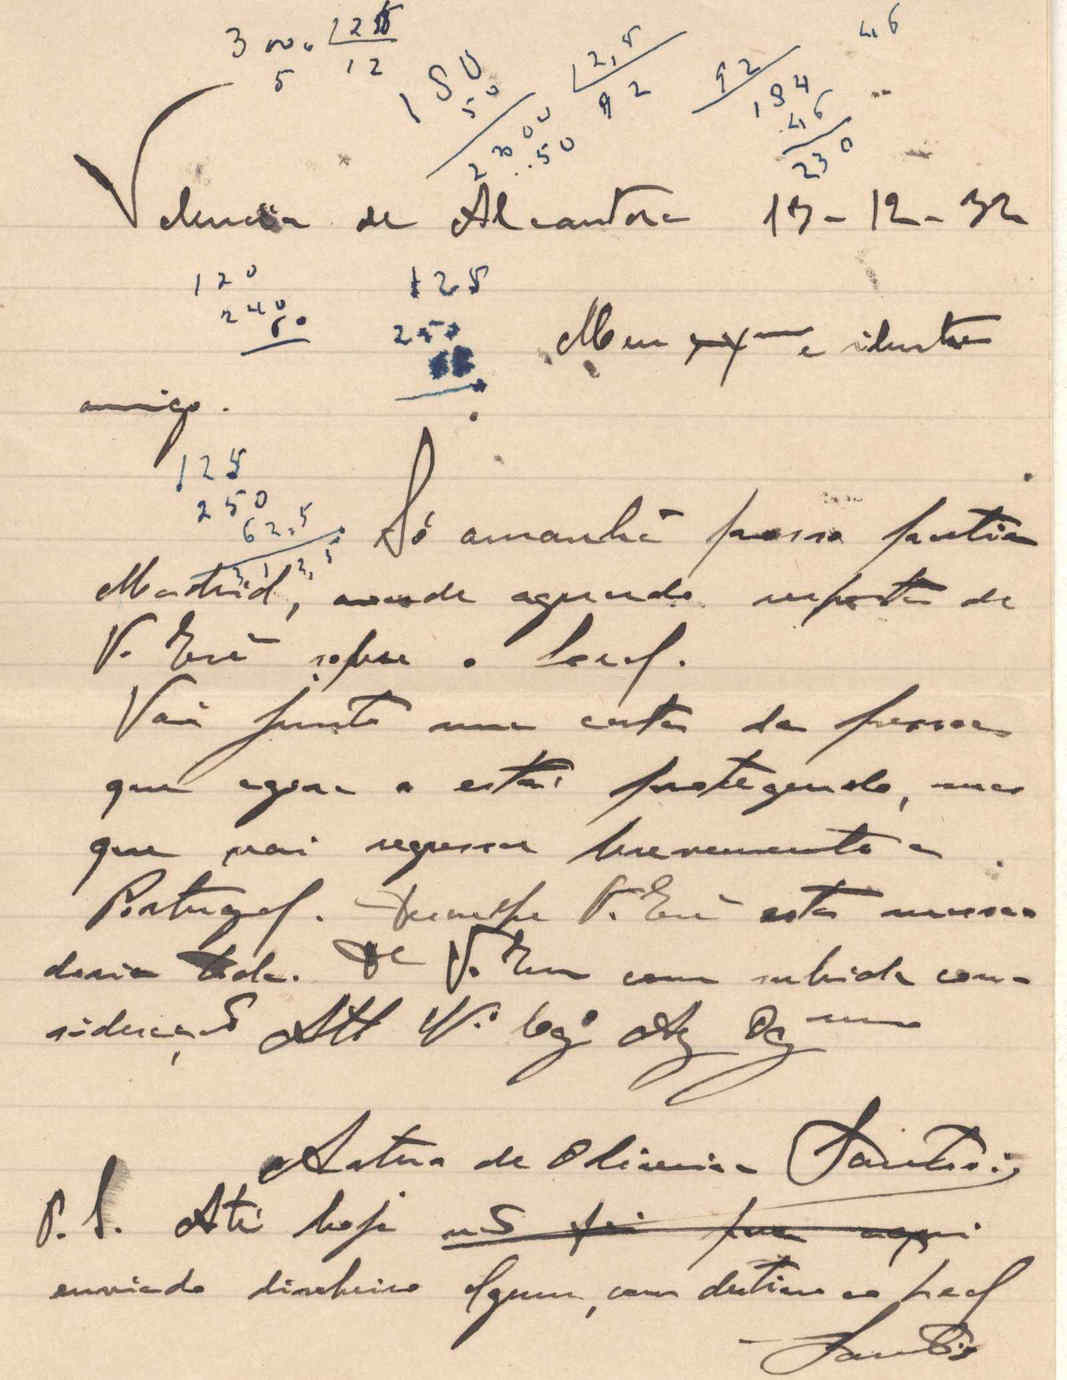 3000 125
5 12
150
50
2000
.50
12,5
92
92
184
46
230
46
Valencia de Alcantara 13-12-32
120
240
60
125
250
Meu Exmo e ilustre
amigo.
125
250
62,5
Só amanhã posso partir
Madrid, aonde aguardo resposta de
V. Exciª sobre o
Vai junto uma carta da pessoa
que agora o está protegendo, mas
que vai regressar brevemente a
Portugal. V. Exciª esta massa-
doria toda. De V. Exciª com subida con-
sideração Att Vor Ob
Artur de Oliveira Santos
P. S. Até hoje não foi para aqui
enviado dinheiro algum, com destino ao
Santos